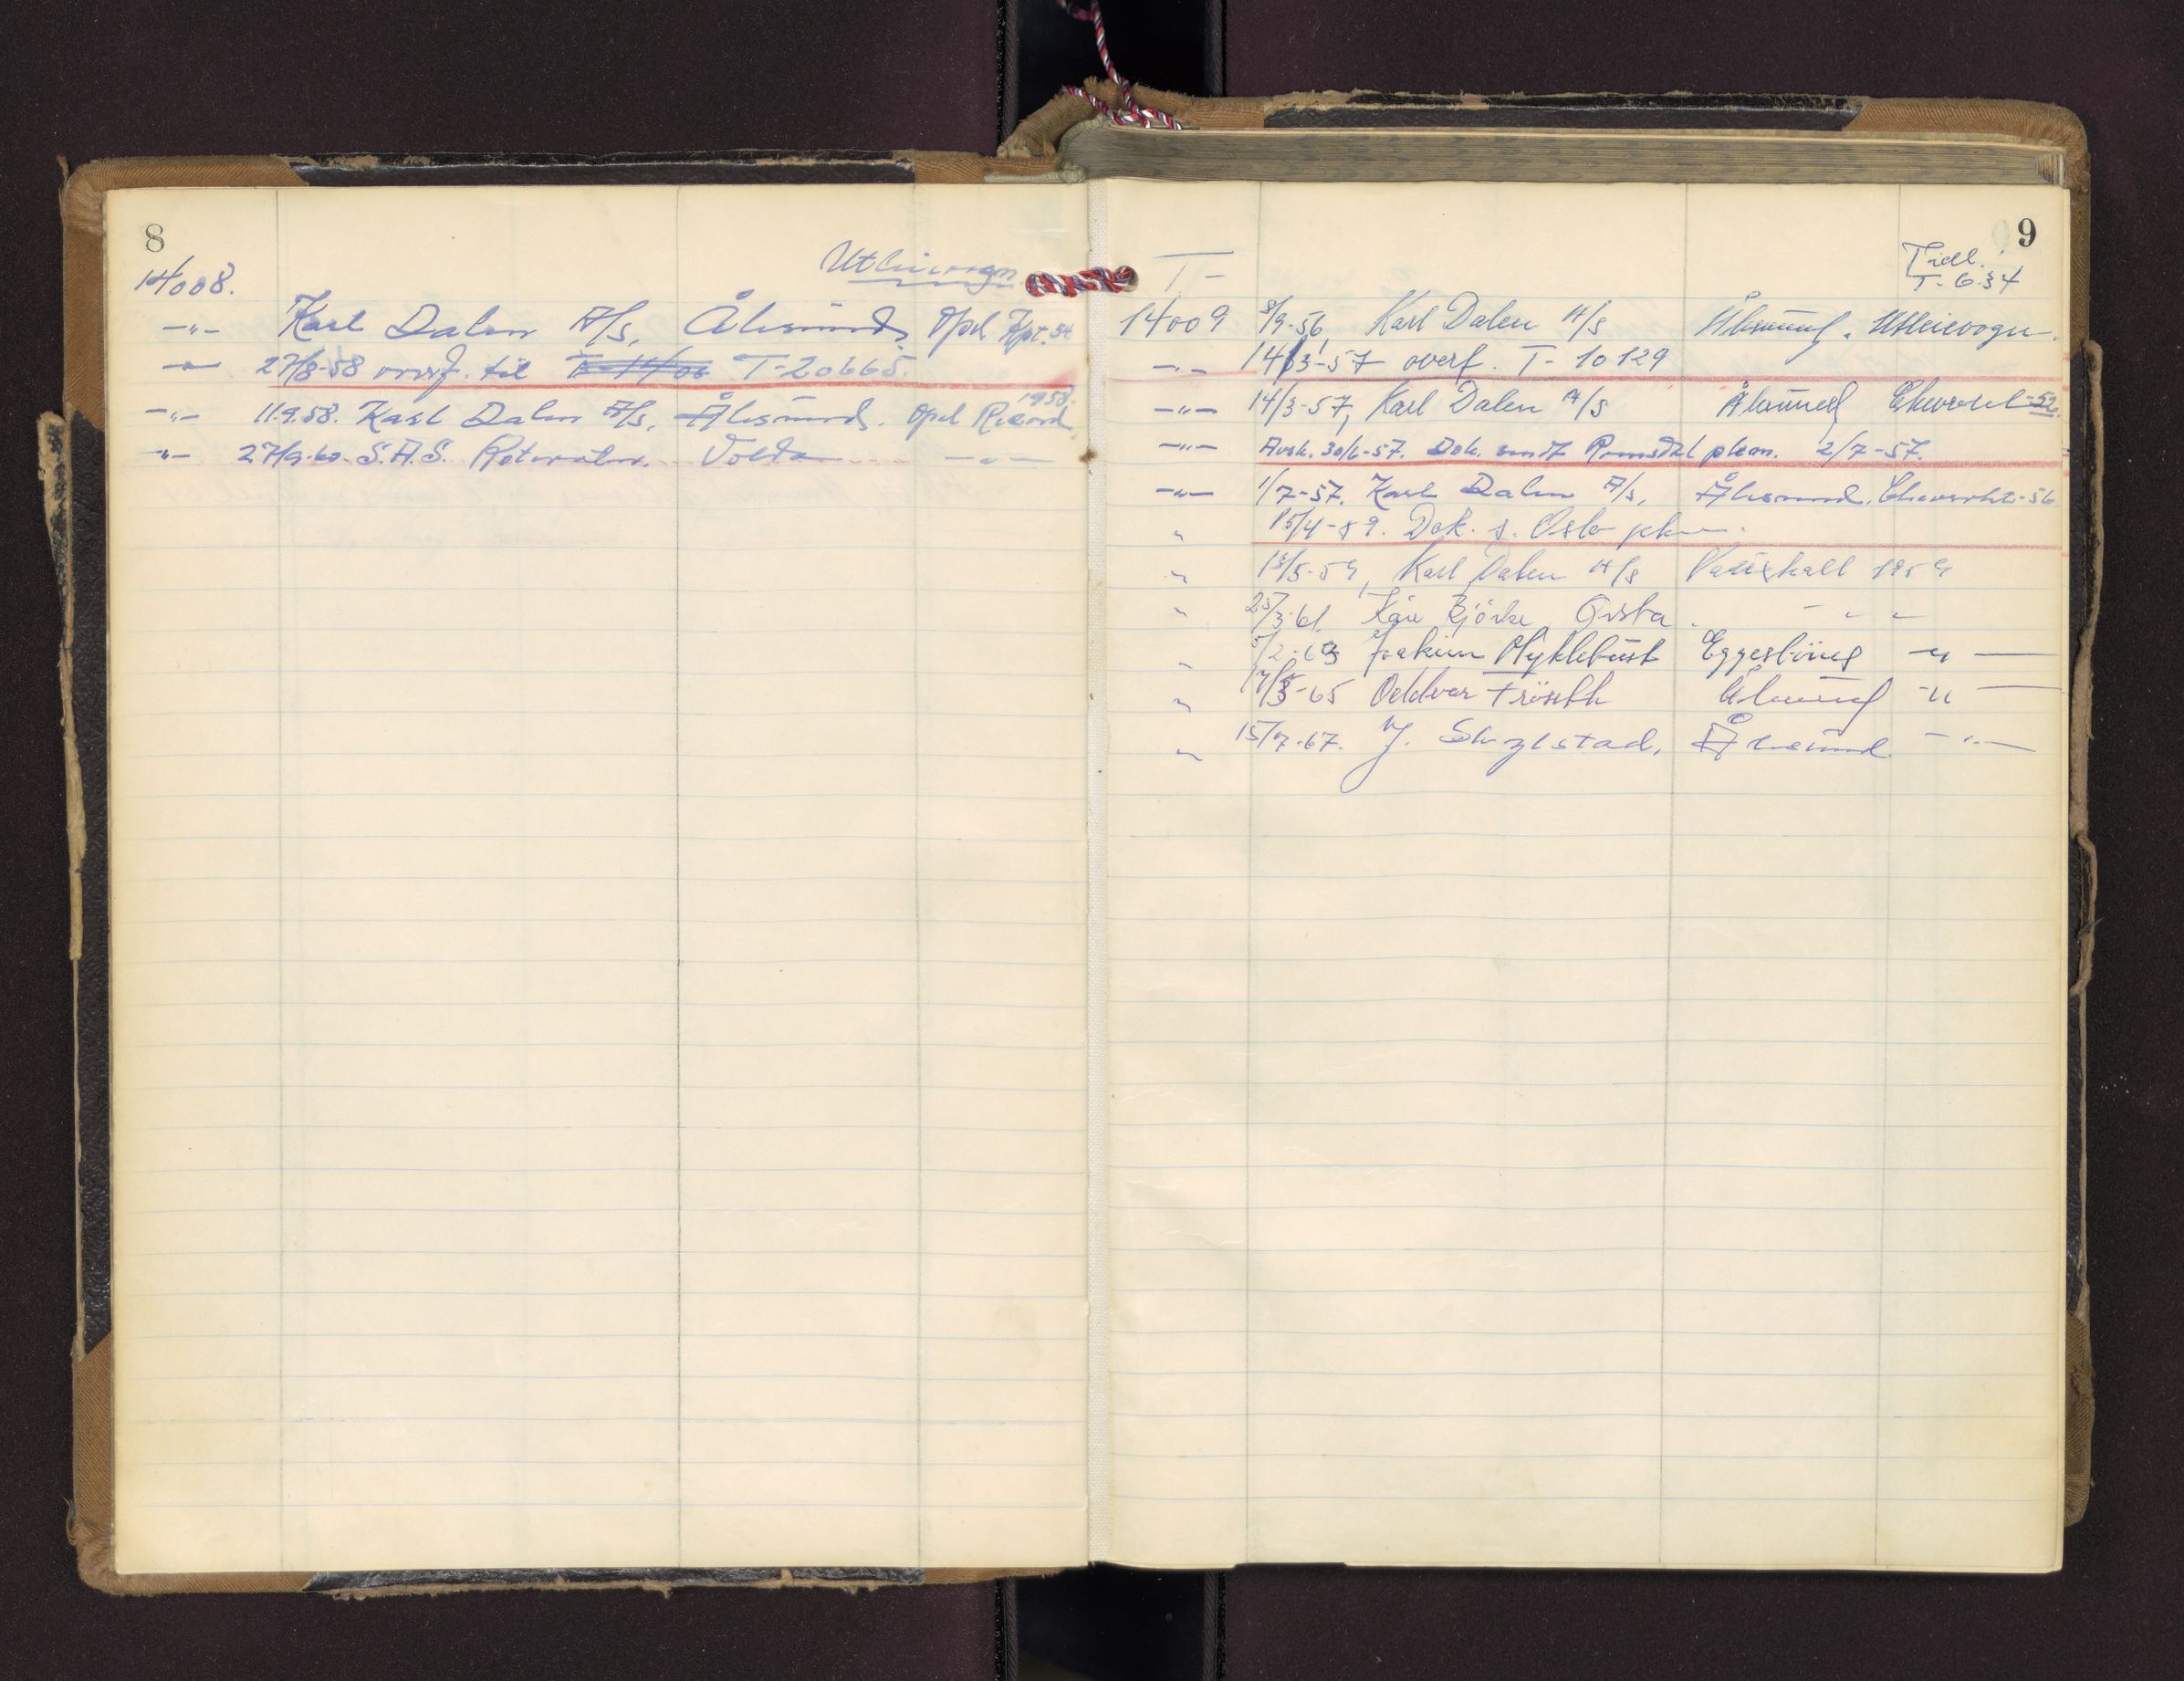 8
Utleievogn
14008.
-"- Karl Dalen A/S, Ålesund. Opel Kpt. 54
-"- 27/8-58 overf. til T-20665.
-"- 11.9.58. Karl Dalen A/S, Ålesund. Opel Rekord 1958.
-"- 27/9-60. S.A.S. Volda -"-
9
T-
Tidl.
T- 6.34
14009 8/9-56, Karl Dalen A/S Ålesund. Utleievogn.
-"- 14/3-57 overf. T- 10129
-"- 14/3-57, Karl Dalen A/S Ålesund Chevrolet-52
-"- Avsk. 30/6-57. Dok. sendt Romsdal pkam. 2/7-57.
-"- 1/7-57. Karl Dalen A/S, Ålesund. Chevrolet-56
" 15/4-59. Dok. s. Oslo pkm.
" 13/5-59, Karl Dalen A/S Vauxhall 1959
" 25/3-61. Kåre Bjørke Ørsta. - " -
" 5/2-63 Joakim Myklebust Eggesbönes - " -
" 17/3-65 Oddvar Ålesund - " -
" 15/7-67. J. Ålesund - " -